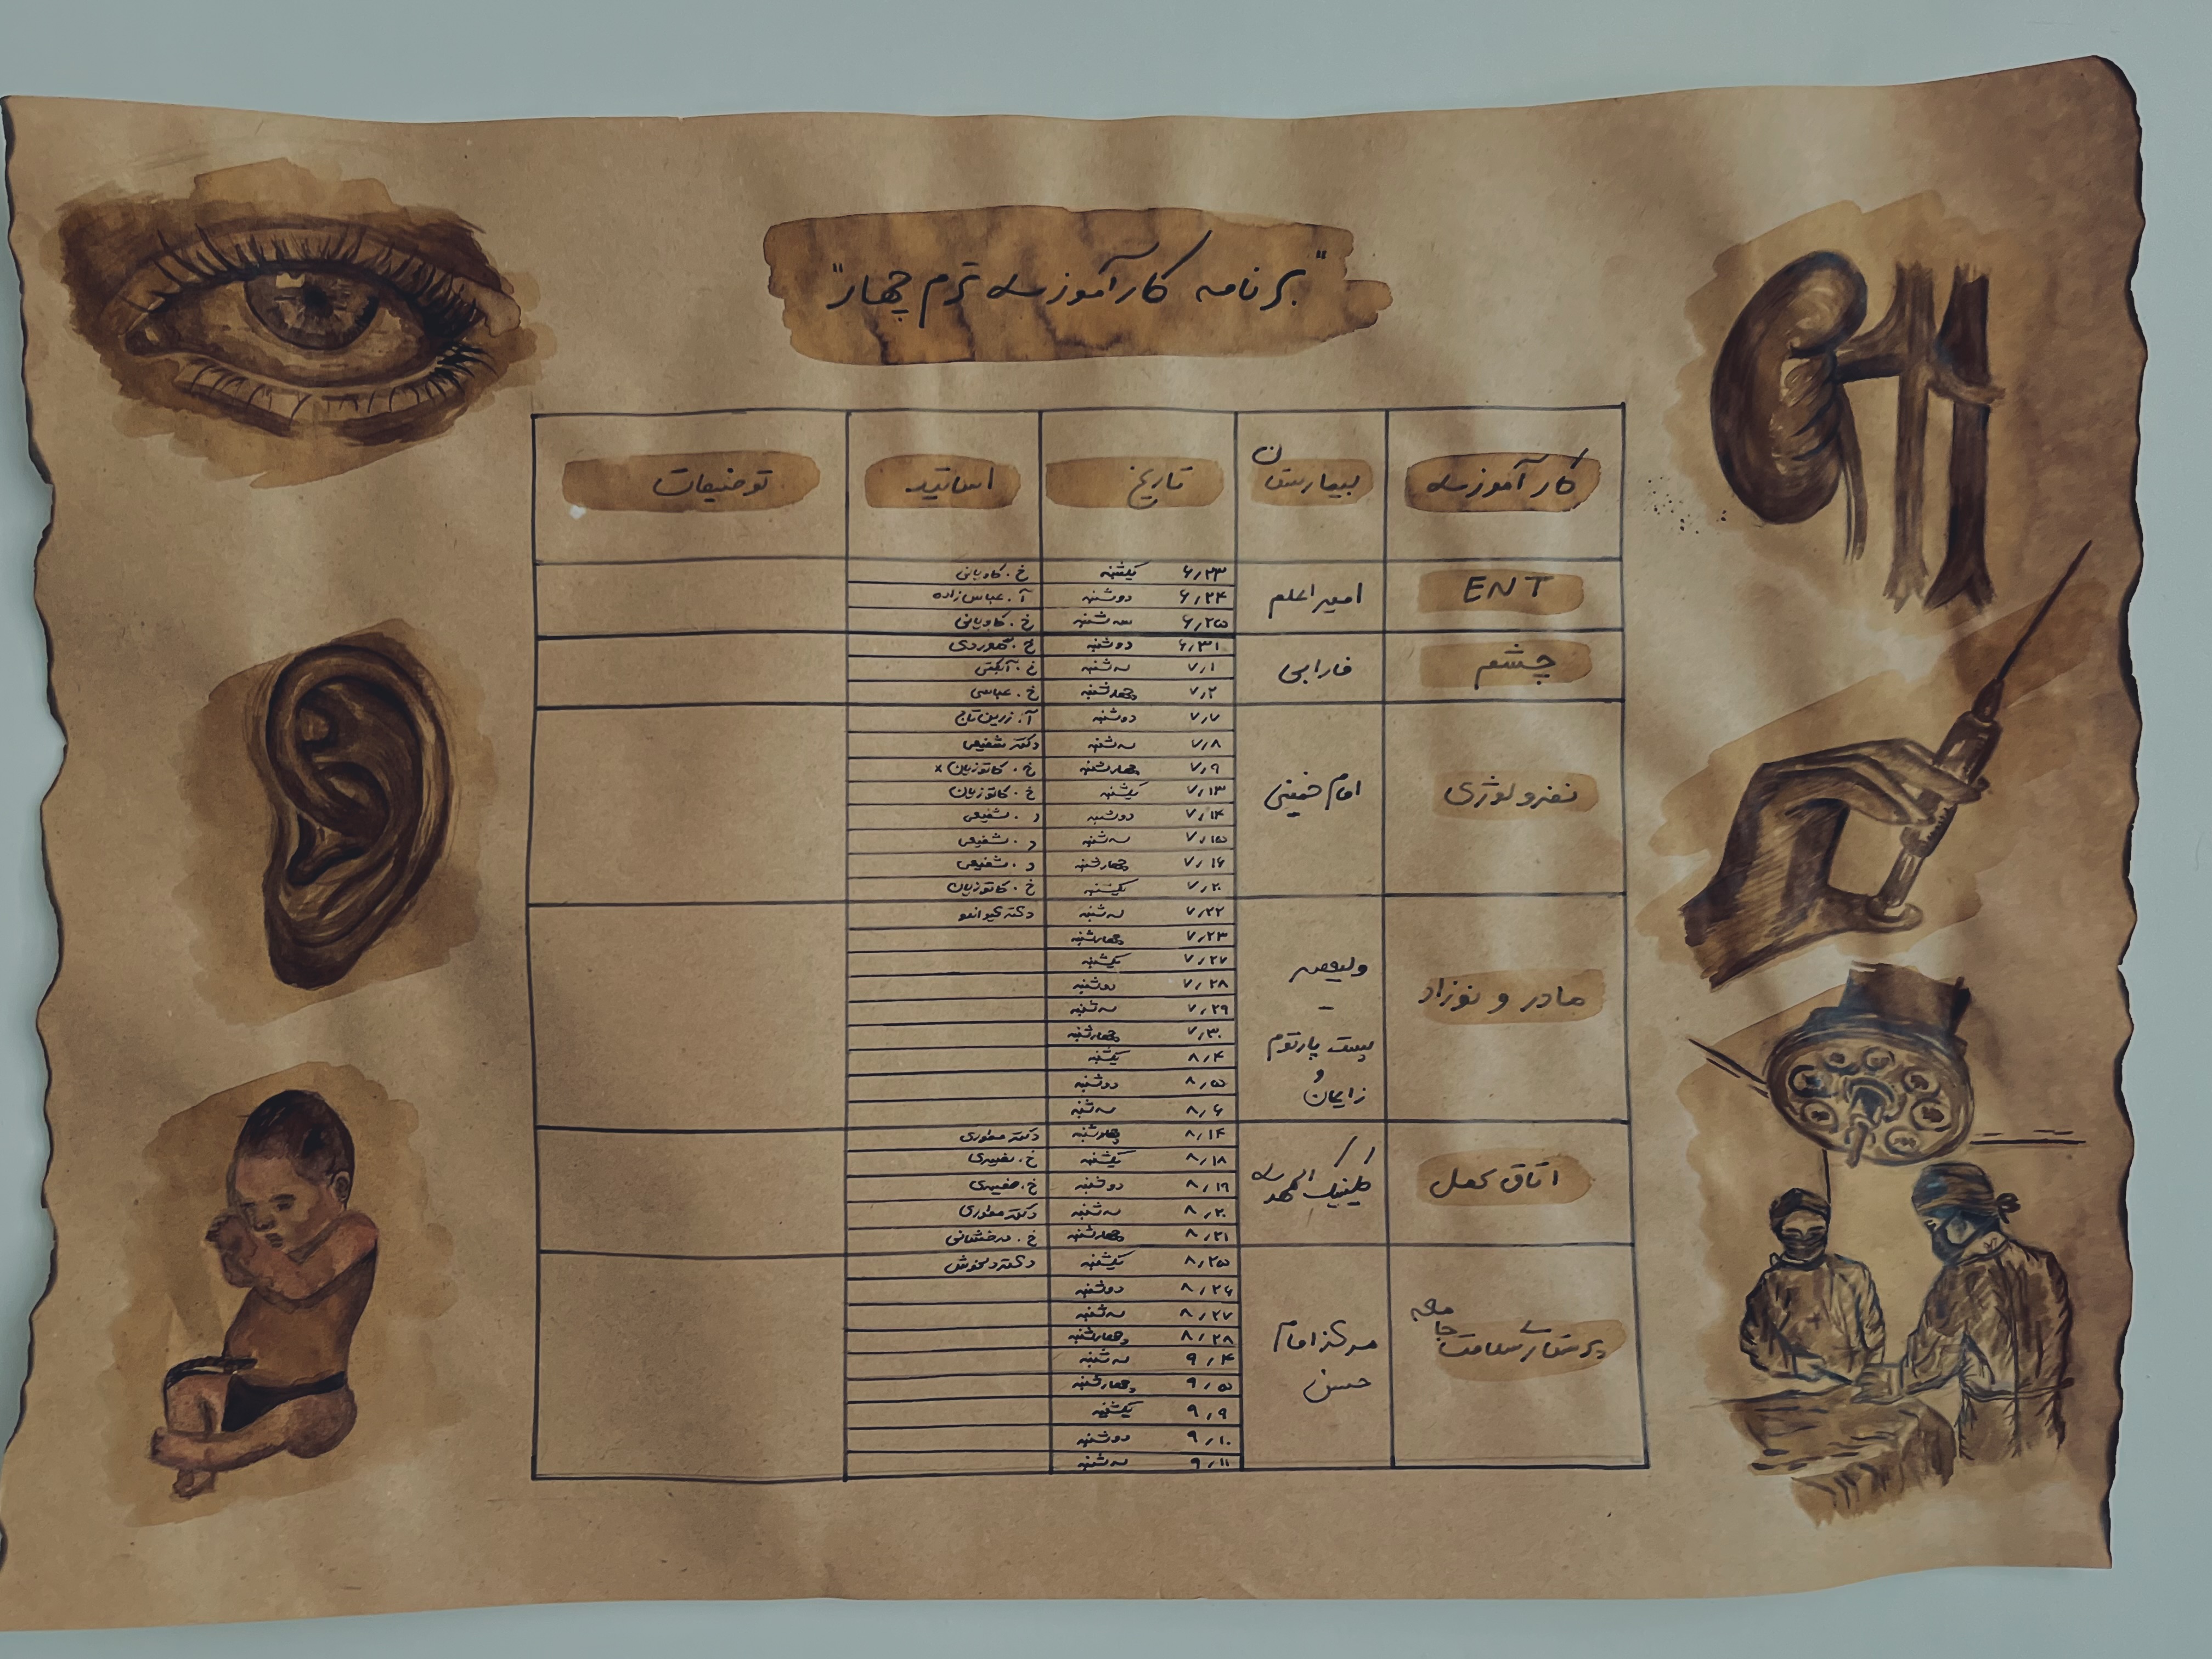 "برنامه کارآموزی ترم چهار"
کارآموزی بیمارستان تاریخ اساتید توضیحات
ENT امیراعلم
۶/۲۳ یکشنبه خ. کاویانی
۶/۲۴ دوشنبه آ. عباس زاده
۶/۲۵ سه شنبه خ. کاویانی
چشم فارابی
۶/۳۱ دوشنبه
۷/۱ سه شنبه
۷/۲ چهارشنبه خ. عباسی
نفرولوژی امام خمینی
۷/۷ دوشنبه آ. زرین تاج
۷/۸ سه شنبه دکتر شفیعی
۷/۹ چهارشنبه خ. کاتوزیان x
۷/۱۳ یکشنبه خ. کاتوزیان
۷/۱۴ دوشنبه د. شفیعی
۷/۱۵ سه شنبه د. شفیعی
۷/۱۶ چهارشنبه د. شفیعی
۷/۲۰ یکشنبه خ. کاتوزیان
مادر و نوزاد
ولیعصر
-
پست پارتوم
و
زایمان
۷/۲۲ سه شنبه دکتر
۷/۲۳ چهارشنبه
۷/۲۷ یکشنبه
۷/۲۸ دوشنبه
۷/۲۹ سه شنبه
۷/۳۰ چهارشنبه
۸/۴ یکشنبه
۸/۵ دوشنبه
۸/۶ سه شنبه
اتاق عمل کلینیک المهدی
۸/۱۴ چهارشنبه دکتر منظوری
۸/۱۸ یکشنبه خ.
۸/۱۹ دوشنبه خ.
۸/۲۰ سه شنبه دکتر منظوری
۸/۲۱ چهارشنبه خ. درخشانی
پرستاری سلامت جامعه
مرکز امام
حسن
۸/۲۵ یکشنبه دکتر دلخوش
۸/۲۶ دوشنبه
۸/۲۷ سه شنبه
۸/۲۸ چهارشنبه
۹/۴ سه شنبه
۹/۵ چهارشنبه
۹/۹ یکشنبه
۹/۱۰ دوشنبه
۹/۱۱ سه شنبه